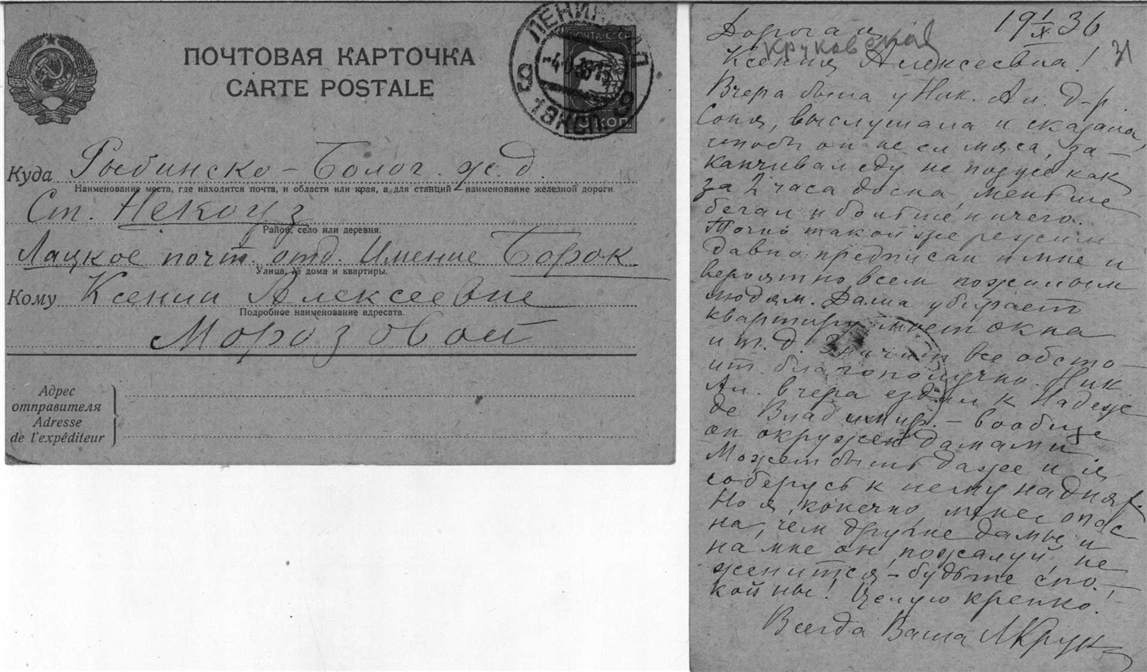 ПОЧТОВАЯ КАРТОЧКА
CARTE POSTALE
ЛЕНИНГРАД
9 9
1 ЭКСП.
ПОЧТА СССР
КОП.
Куда Рыбинско-Болог. ж.д.
Наименование места, где находится почта, и области или края, а для станций – наименование железной дороги
Ст. Некоуз
Район, село или деревня.
Лацкое почт. отд. Имение Борок
Улица, № дома и квартиры.
Кому Ксении Алексеевне
Подробное наименование адресата.
Морозовой
Адрес
отправителя
Adresse
de l'expéditeur
19 1/X 36
Дорогая
Круковская
31
Ксения Алексеевна!
Вчера была у Ник. Ал. д-р.
Соня, выслушала и сказала
чтобы он не ел мяса, за-
канчивал еду не позже как
за 2 часа до сна, меньше
бегал и больше ничего.
Точно такой же режим
давно предписан и мне и
вероятно, всем пожилым
людям. Даша убирает
квартиру, моет окна
и т.д. Значит все обсто-
ит благополучно. Ник.
Ал. вчера ездил к Надеж-
де Владимир. – вообще
он окружен дамами
Может быть даже и я
соберусь к нему на днях.
Но я, конечно менее опас
на, чем другие дамы и
на мне он, пожалуй, не
женится – будьте спо-
койны! Целую крепко.
Всегда Ваша МКрук